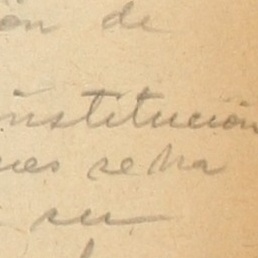 ón de
institución
ues se ha
su